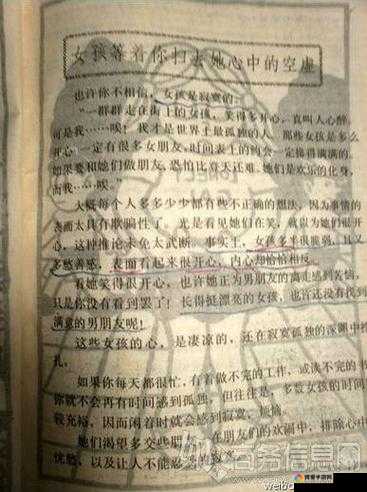 女孩等着你扫去她心中的空虚
也许你不相信，女孩是寂寞的。
“一群群走在街上的女孩，笑得多开心，真叫人心醉，
可是我……唉！我才是世界上最孤独的人，那些女孩是多么
开心，一定有很多女朋友，时间表上的约会一定排得满满的。
如果要和她们做朋友，恐怕比登天还难。她们是欢乐的化身，
而我……唉！
大概每个人多多少少都有些不正确的想法，因为事情的
表面太具有欺骗性了。光是看见她们在笑，就以为她们很开
心，这种推论未免太武断。事实上，女孩多半很脆弱，且又
多愁善感，表面看起来很开心，内心却恰恰相反。
看她笑得很开心，也许她正为男朋友的离走感到苦恼，
只是你没有看到罢了！长得挺漂亮的女孩，也许还没有找到
满意的男朋友呢！
这些女孩的心，是凄凉的，还在寂寞孤独的深渊中挣
扎。
如果你每天都很忙，有着做不完的工作，或读不完的书
你就不会再有时间感到孤独，但往往是，多数女孩的时间
较充裕，因而闲着时就会感到寂寞、烦恼。
她们渴望多交些朋友，在朋友们的欢闹中，排除心中
忧愁，以及让人不能忍受的寂寞。